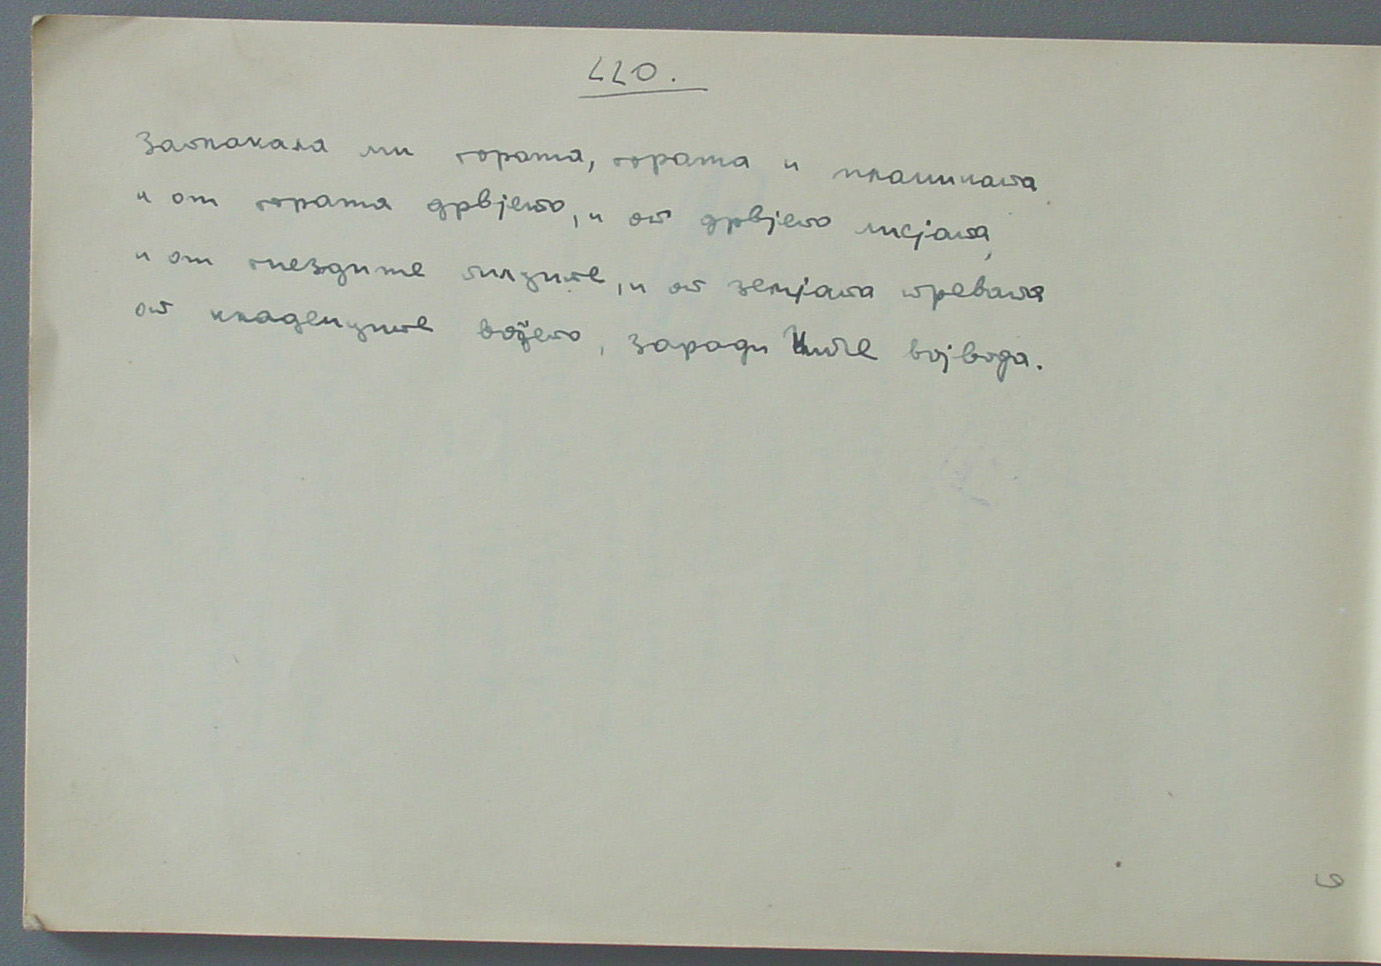 220.
Заплакала ми гората, гората и планината
и от гората дрвјето, и от дрвјето лисјата,
и от гнездите пилците, и от земјата тревата
от кладенците, заради војвода.